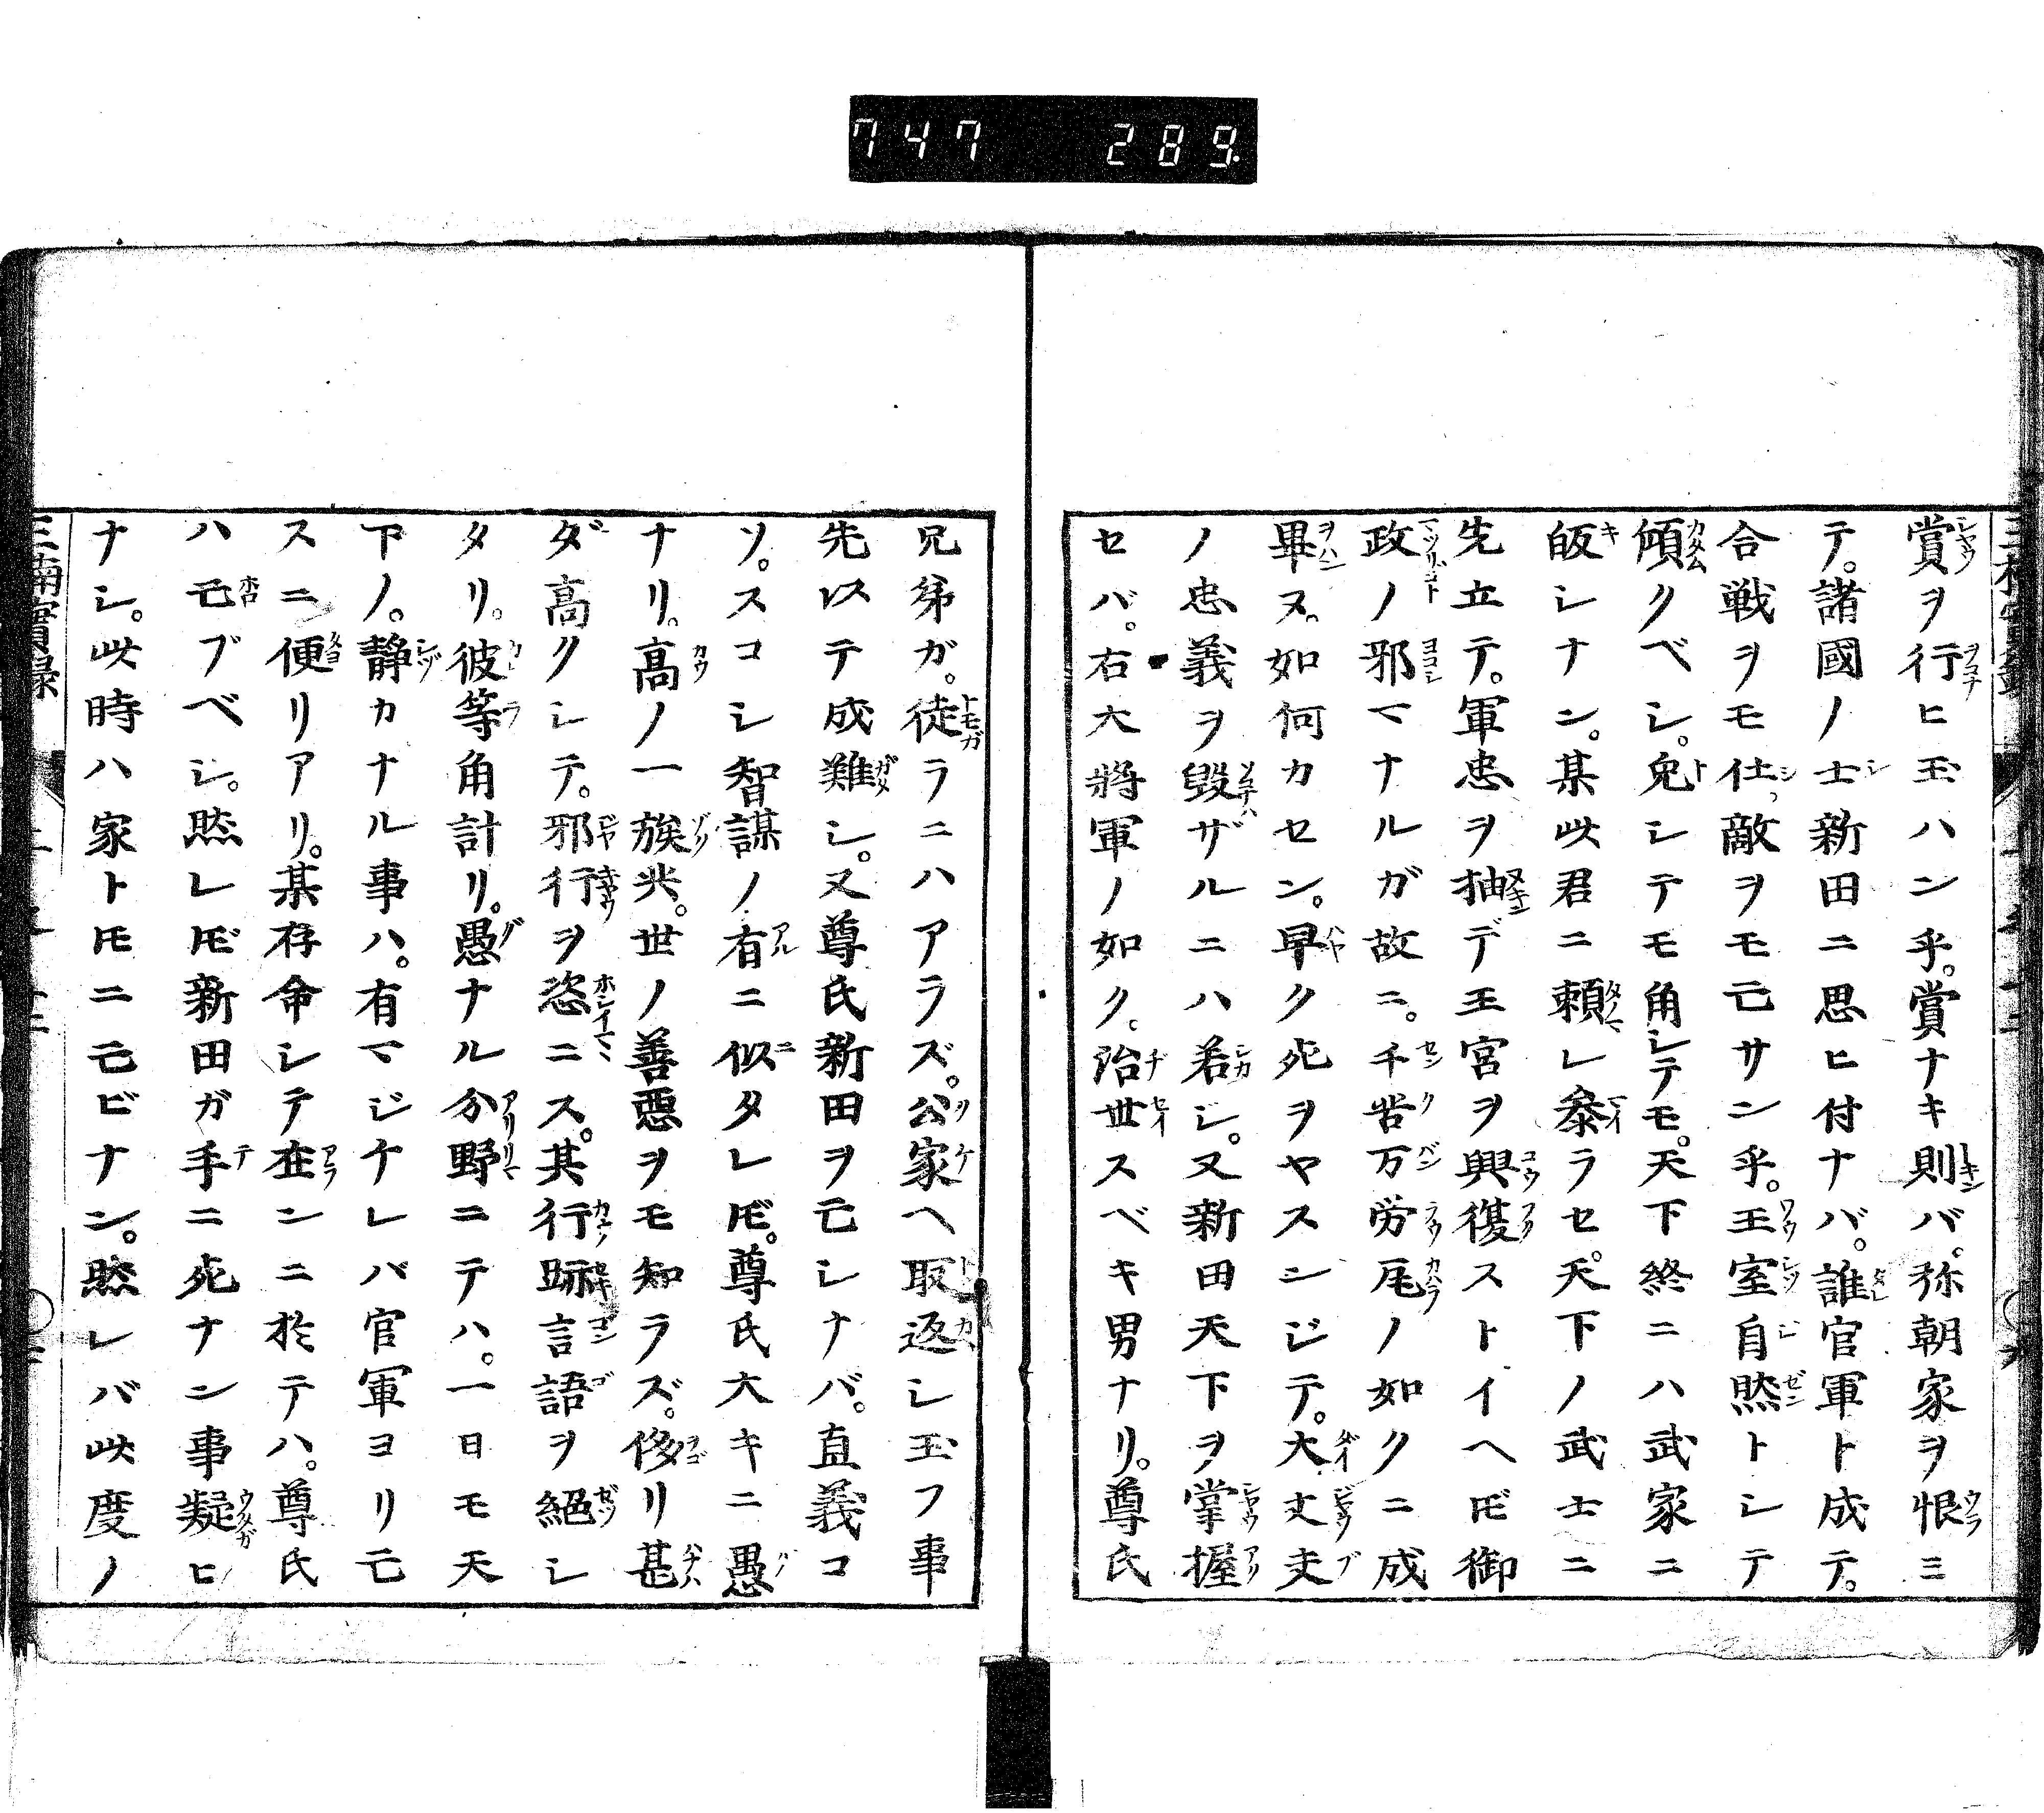 747 289.
賞ヲ行ヒ玉ハン乎。賞ナキ則バ。弥朝家ヲ恨ミ
テ。諸國ノ士新田ニ思ヒ付ナバ。誰官軍ト成テ。
合戦ヲモ仕。敵ヲモ亡サン乎。王室自然トシテ
傾クベシ。兔シテモ角シテモ。天下終ニハ武家ニ
皈シナン。某此君ニ頼レ参ラセ。天下ノ武士ニ
先立テ。軍忠ヲ抽デ王宮ヲ興復ストイヘ𪜈御
政ノ邪マナルガ故ニ。千苦万労尾ノ如クニ成
畢ヌ。如何カセン。早ク死ヲヤスンジテ。大丈夫
ノ忠義ヲ毀ザルニハ若ジ。又新田天下ヲ掌握
セバ。右大將軍ノ如ク。治世スベキ男ナリ。尊氏
兄弟ガ。徒ラニハアラズ。公家ヘ取返シ玉フ事
先以テ成難シ。又尊氏新田ヲ亡シナバ。直義コ
ソ。スコシ智謀ノ有ニ似タレ𪜈。尊氏大キニ愚
ナリ。高ノ一族共。世ノ善惡ヲモ知ラズ。侈リ甚
ダ高クシテ。邪行ヲ恣ニス。其行跡言語ヲ絕シ
タリ。彼等角計リ。愚ナル分野ニテハ。一日モ天
下ノ。静カナル事ハ。有マジケレバ官軍ヨリ亡
スニ便リアリ。某存命シテ在ンニ於テハ。尊氏
ハ亡ブベシ。然レ𪜈新田ガ手ニ死ナン事疑ヒ
ナシ。此時ハ家ト𪜈ニ亡ビナン。然レバ此度ノ